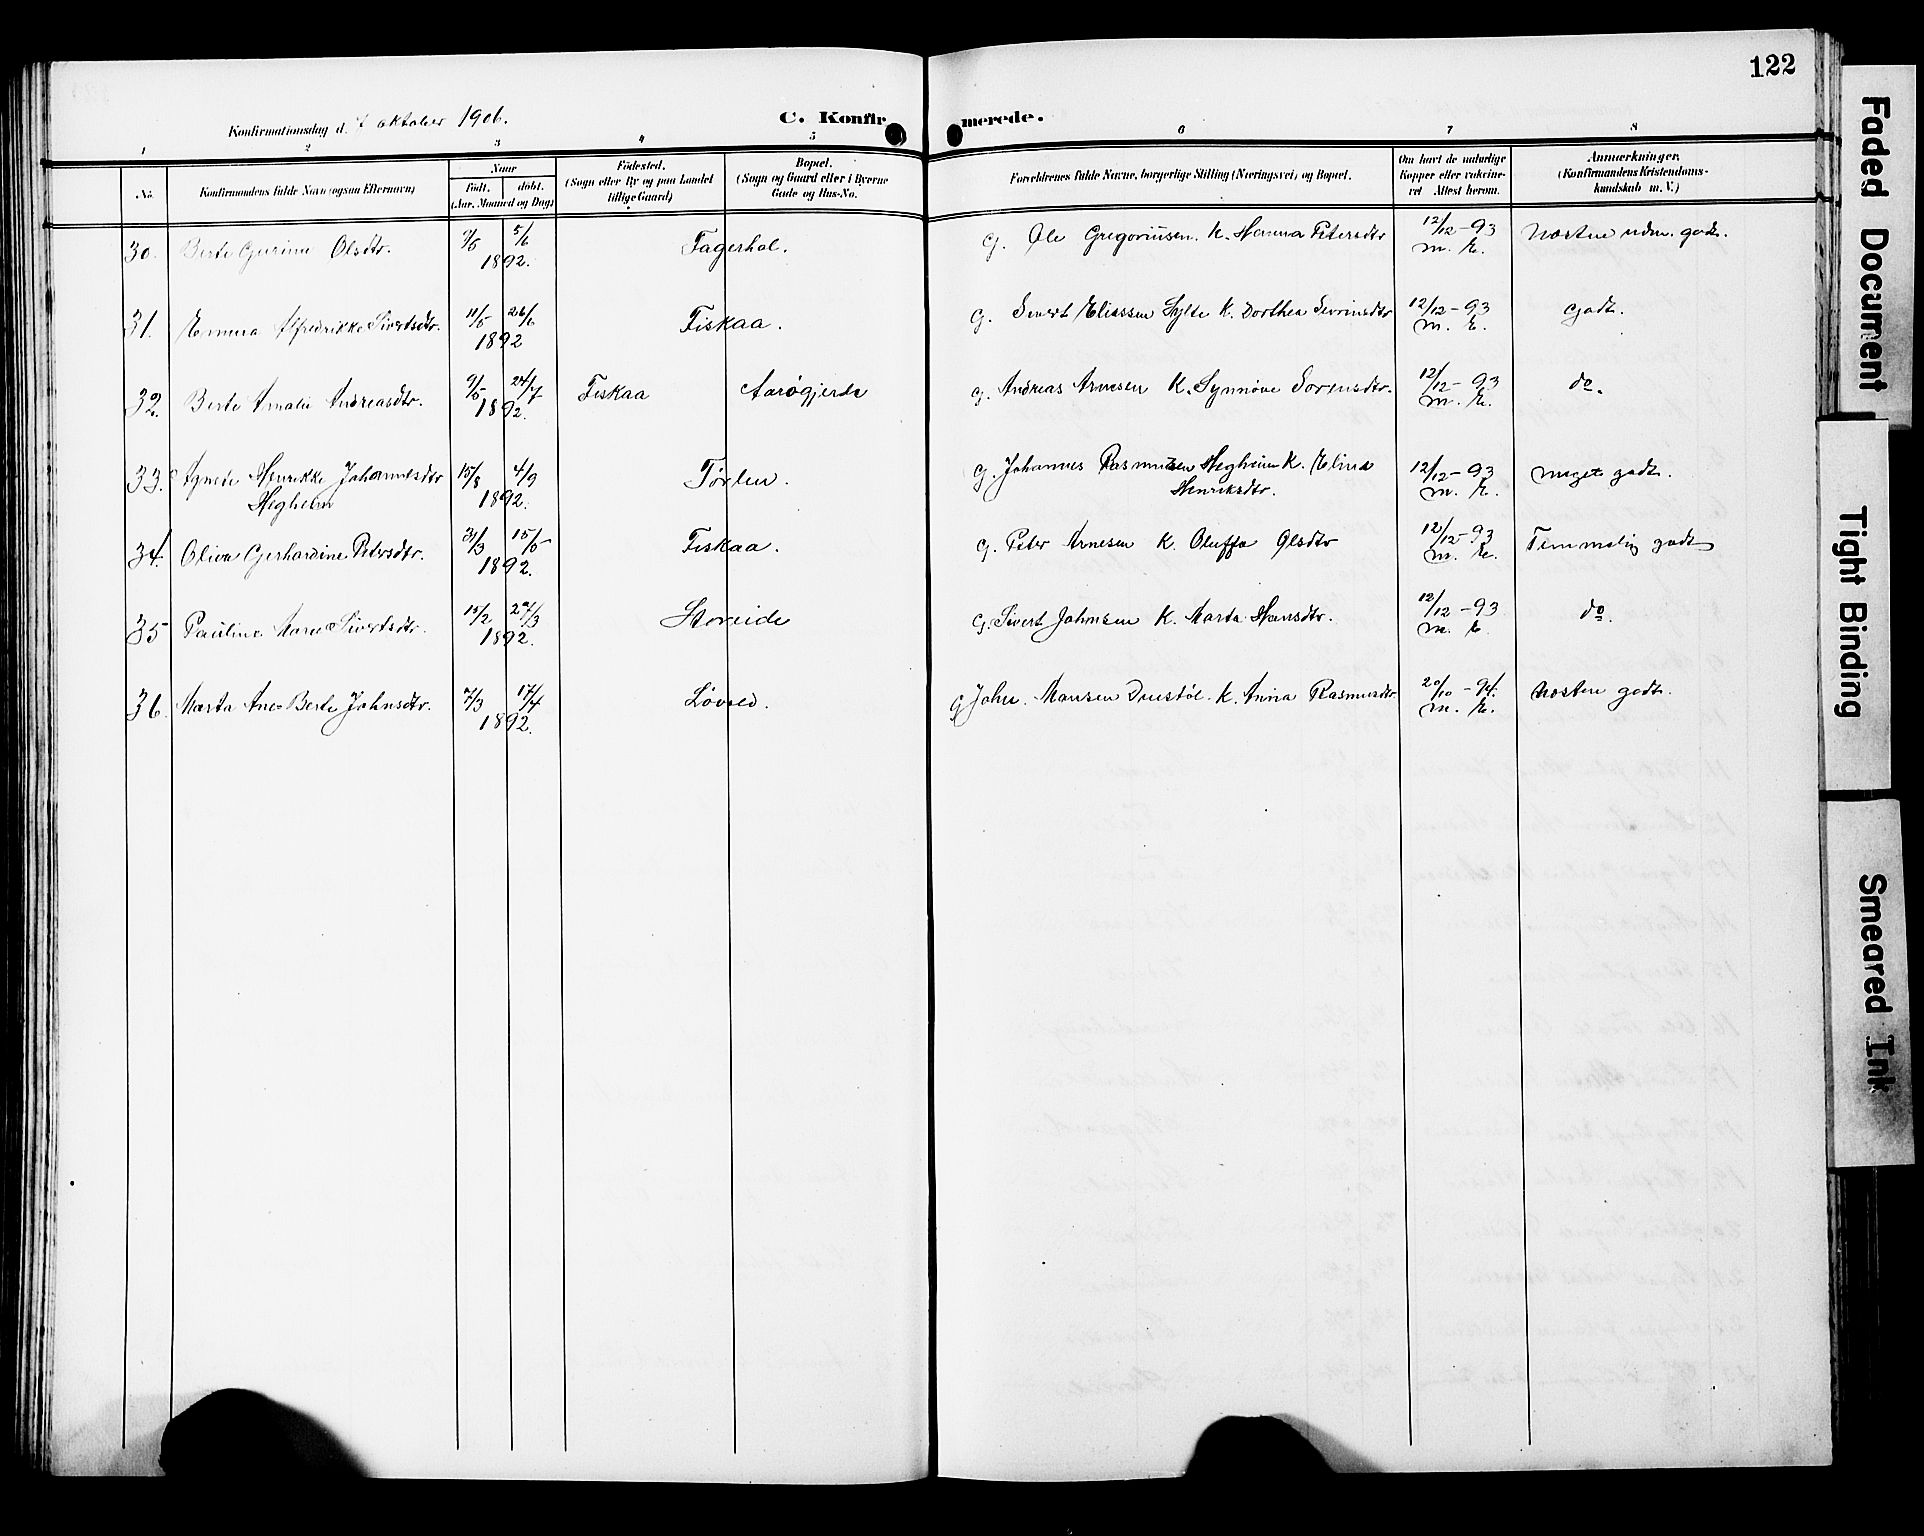 122
Konfirmationsdag d. 7 oktober 1906.
C. Konfirmerede.
1 2 3 4 5 6 7 8
No.
Konfirmandens fulde Navn (ogsaa Efternavn)
Naar
født. døbt.
(Aar, Maaned og Dag)
Fødested.
(Sogn eller By og paa Landet
tillige Gaard)
Bopæl.
(Sogn og Gaard eller i Byerne
Gade og Hus-No.
Forældrenes fulde Navne, borgerlige Stilling (Næringsvei) og Bopæl.
Om havt de naturlige
Kopper eller vakcine-
ret Attest herom.
Anmærkninger.
(Konfirmandens Kristendoms-
kundskab m. V.)
30. Berte Gurine Olsdtr. 5/6 Fagerhol. G. Ole Gregoriusen K. Hanna Petersdtr 12/12-93 Næsten udm. godt.
1892. m. E.
31. Emma Alfredrikke Sivertsdtr. 11/5 26/6 Fiskaa. G. Sivert Eliassen Sylte K. Dorthea Sivrinsdtr 12/12-93 Godt.
1892 m. E.
32. Berte Amalie Andreasdtr. 9/5 24/7 Fiskaa Aarøgjerde G. Andreas Arnesen K. Synnøve Sorensdtr. 12/12-93 do.
1892. m. E.
33. Agnete Henrikke Johannesdtr 15/8 4/9 Tørlen. G. Johannes Rasmussen Hegheim K. Elina 12/12-93 meget godt.
Hegheim 1892. Henriksdtr. m. E.
34. Oliva Gerhardine Petersdtr. 31/3 15/5 Fiskaa. G. Peter Arnesen K. Oluffa Olsdtr 12/12-93 Temmelig godt
1892. m. E.
35 Pauline Marie Sivertsdtr. 15/2 27/3 Storeide G. Sivert Johnsen K. Marta Hansdtr. 12/12-93 do.
1892. m. E.
36. Marta Ane Berte Johnsdtr. 7/3 17/4 Løvold. G John Mansen K. Anna Rasmusdtr 20/10-94. Næsten godt.
1892. m. E.
Faded Document
Tight Binding
Smeared Ink